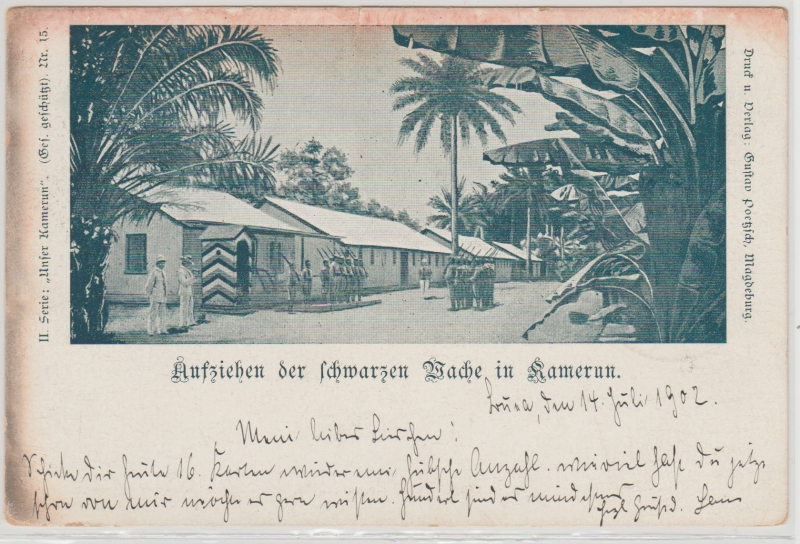 II. Serie: „Unser Kamerun“. (Ges. geschützt). Nr. 15.
Druck u. Verlag: Gustav Poetzsch, Magdeburg.
Aufziehen der schwarzen Wache in Kamerun.
den 14. Juli 1902.
Mein liebes Lieschen!
Schicke dir heute 16. Karten wieder eine hübsche Anzahl. wieviel hast du jetzt
schon von mir möchte er gern wissen. hundert sind es mindestens
herzl